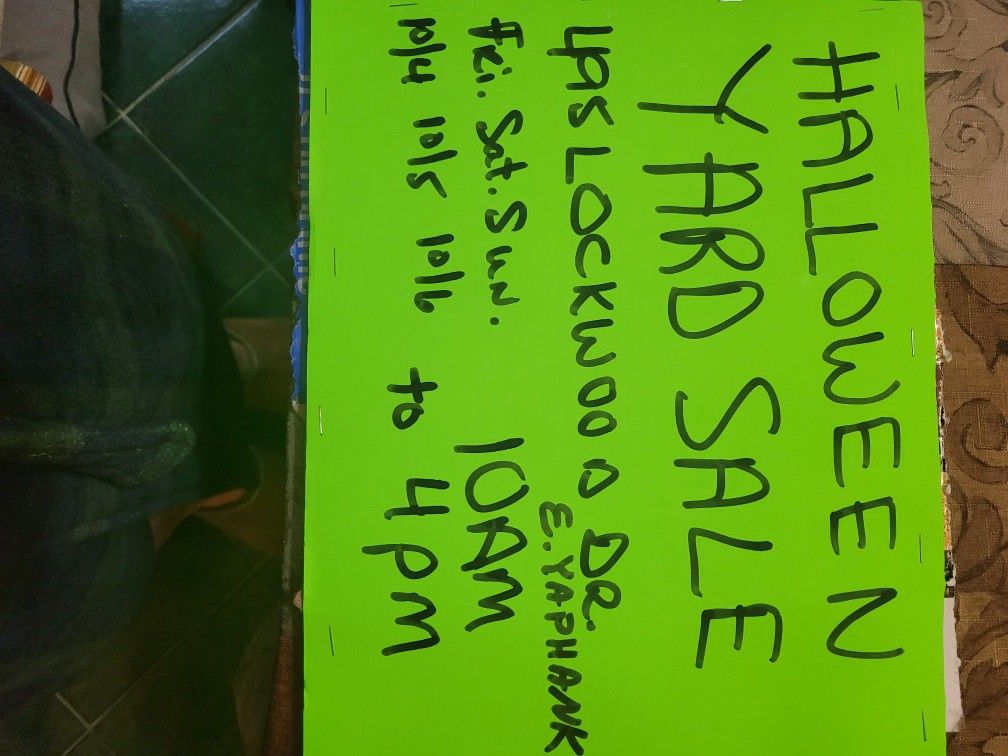 HALLOWEEN
YARD SALE
49S LOCKWOOD DR.
E. YAPHANK
Fri. Sat. Sun. 10AM
10/4 10/5 10/6 to 4pm